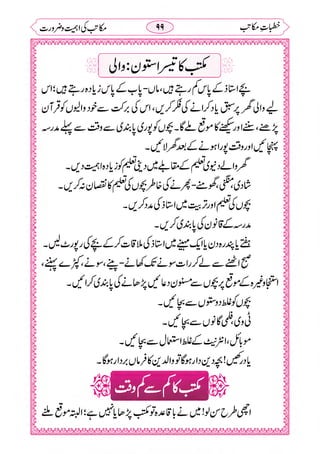 خطباتِ مکاتب
۹۹
مکاتب کی اہمیت و ضرورت
مکتب کا تیسرا ستون: والی
بچے استاذ کے پاس کم رہتے ہیں، ماں-باپ کے پاس زیادہ رہتے ہیں؛ اس
لیے والی گھر پر سبق یاد کرانے کی فکر کریں، اس کی برکت سے خود والیوں کو قرآن
پڑھنے، سننے، اور سیکھنے کا موقع ملے گا۔ بچوں کو پوری پابندی سے وقت سے پہلے مدرسہ
پہنچائیں اور وقت پورا ہونے کے بعد گھر لائیں۔
گھر والے دنیوی تعلیم کے مقابلے میں دینی تعلیم کو زیادہ اہمیت دیں۔
شادی، منگنی، گھومنے-پھرنے کی خاطر بچوں کی تعلیم کا نقصان نہ کریں۔
بچوں کی تعلیم اور تربیت میں استاذ کی مدد کریں۔
مدرسہ کے قانون کی پابندی کریں۔
ہفتے یا پندرہ دن یا ایک مہینے میں استاذ کی ملاقات کر کے بچے کی رپورٹ لیں۔
صبح اٹھنے سے لے کر رات سونے تک کھانے-پینے، سونے، کپڑے پہننے،
استنجا وغیرہ کے موقع پر بچوں سے مسنون دعائیں پڑھانے کی پابندی کرائیں۔
بچوں کو غلط دوستوں سے بچائیں۔
ٹی وی، فلمی گانوں سے بچائیں۔
موبائل، انٹرنیٹ کے غلط استعمال سے بچائیں۔
یاد رکھیں! بچہ دین دار ہوگا تو والدین کا فرماں بردار ہوگا۔
مکتب کا کم سے کم وقت
اچھی طرح سن لو! میں نے باقاعدہ تو مکتب پڑھایا نہیں ہے؛ البتہ موقع ملنے